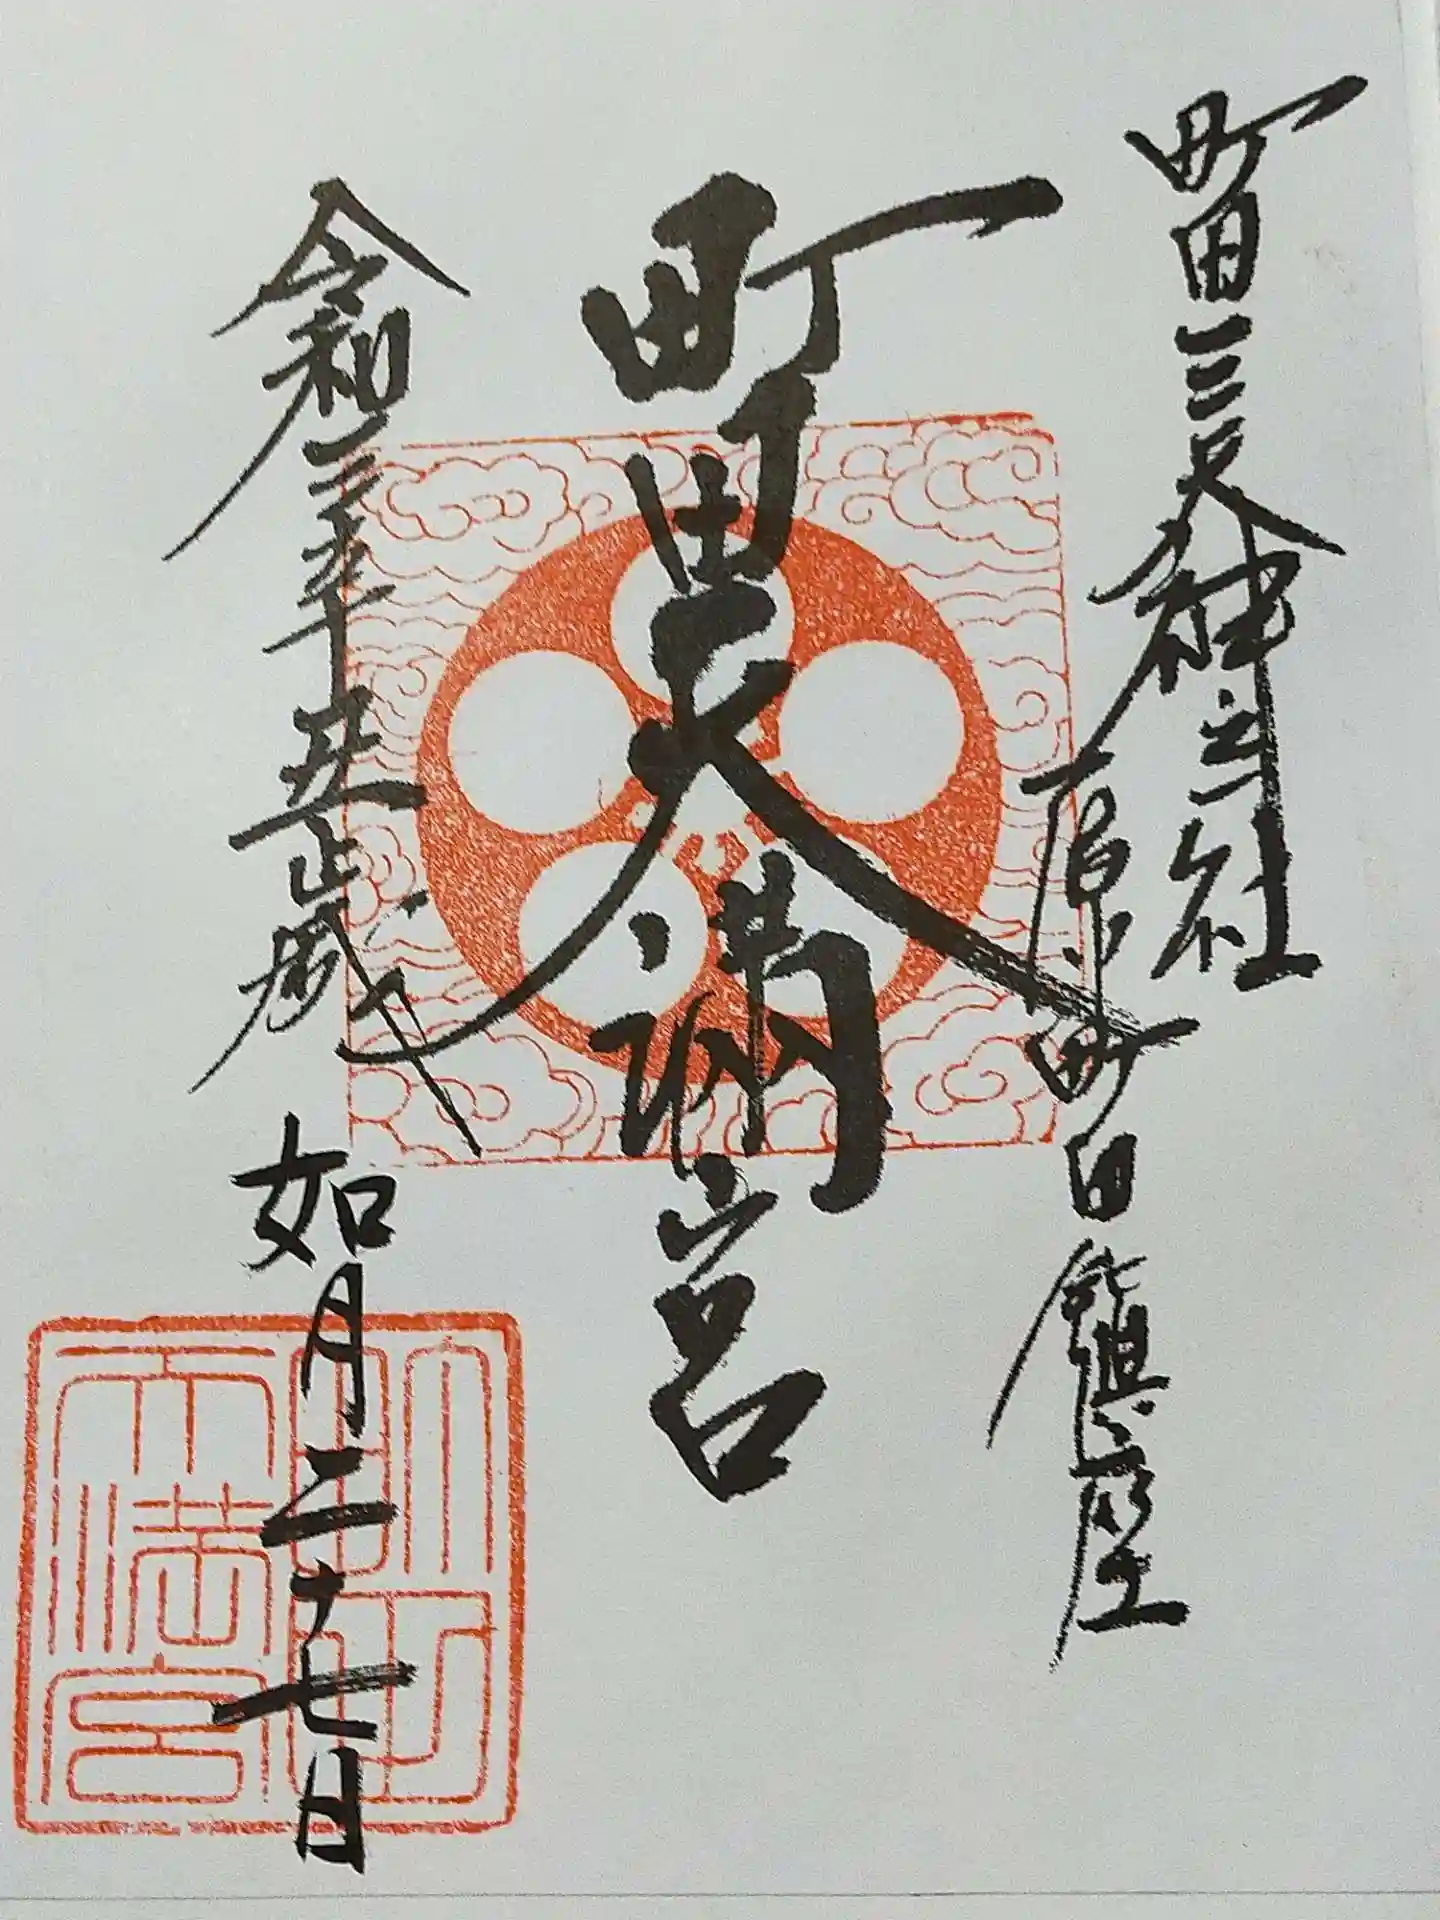 町田三天神之社
原町田鎮座
町田天満宮
令和三年丑歳 如月二十七日
天満宮